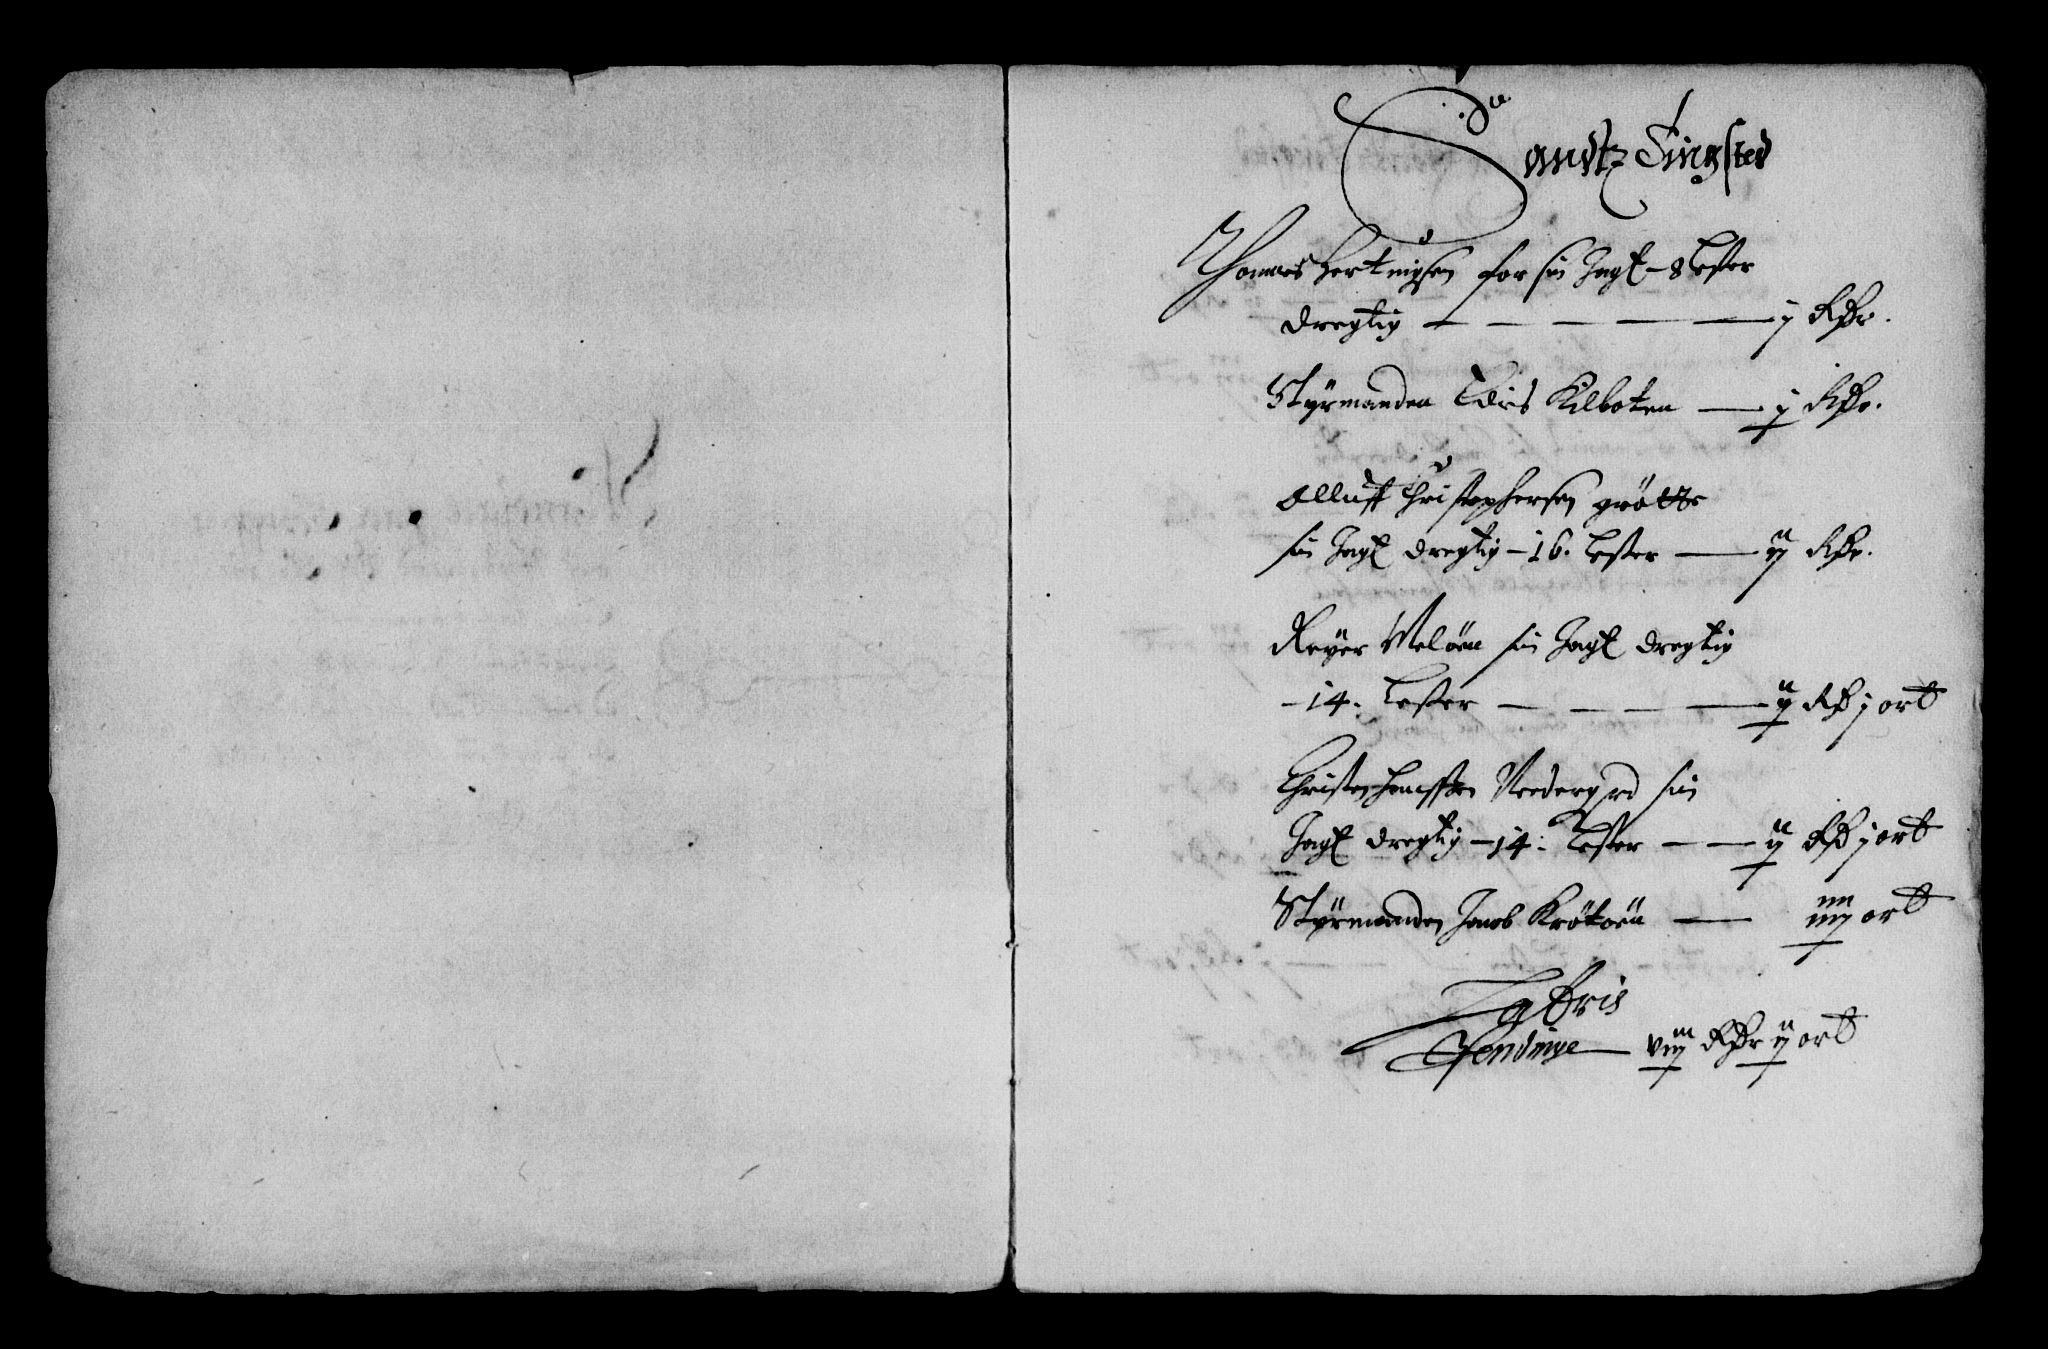 Sandtz Tingsted
Thomas Hertuigsen for sin Jagt - 8 Lester
dregtig — j Rdr.
Styrmanden Lars Kilboten — j Rdr.
Olluff Christophersen grøtte
sin Jagt dregtig - 16. Lester — ij Rdr.
Reyer Meløen sin Jagt dregtig
- 14. Lester — ij Rd j ort
Christen Jenssen Nedergrd sin
Jagt dregtig - 14. Lester — ij Rd j ort
Styrmanden Jacob Krøkøen — iiij ort
Latris
Pendinge — viij Rdr ij ort